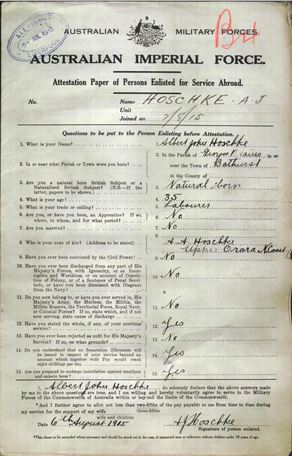 AUSTRALIAN MILITARY FORCES.
AUSTRALIAN IMPERIAL FORCE.
Attestation Paper of Persons Enlisted for Service Abroad.
No. Name HOSCHKE. A.J
Unit
Joined on 7/8/15
Questions to be put to the Person Enlisting before Attestation.
1. What is your Name? 1. Albert John Hoschke
2. In or near what Parish or Town were you born? 2. In the Parish of in or
near the Town of Bathurst
in the County of
3. Are you a natural born British Subject or a Naturalised British Subject? (N.B.—If the latter, papers to be shown.) 3. Natural born
4. What is your age? 4. 35
5. What is your trade or calling? 5. Labourer
6. Are you, or have you been, an Apprentice? If so, where, to whom, and for what period? 6. No
7. Are you married? 7. No
8. Who is your next of kin? (Address to be stated) 8. Hoschke
Upper Orara
9. Have you ever been convicted by the Civil Power? 9. No
10. Have you ever been discharged from any part of His Majesty's Forces, with Ignominy, or as Incorrigible and Worthless, or on account of Conviction of Felony, or of a Sentence of Penal Servitude, or have you been dismissed with Disgrace from the Navy? 10. No
11. Do you now belong to, or have you ever served in, His Majesty's Army, the Marines, the Militia, the Militia Reserve, the Territorial Force, Royal Navy or Colonial Forces? If so, state which, and if not now serving, state cause of discharge 11. No
12. Have you stated the whole, if any, of your previous service? 12. Yes
13. Have you ever been rejected as unfit for His Majesty's Service? If so, on what grounds? 13. No
14. Do you understand that no Separation Allowance will be issued in respect of your service beyond an amount which together with Pay would reach eight shillings per day? 14. Yes
15. Are you prepared to undergo inoculation against smallpox and enteric fever? 15. Yes
I, Albert John Hoschke, do solemnly declare that the above answers made
by me to the above questions are true, and I am willing and hereby voluntarily agree to serve in the Military
Forces of the Commonwealth of Australia within or beyond the limits of the Commonwealth.
*And I further agree to allot not less than two-fifths of the pay payable to me from time to time during
three-fifths
my service for the support of my wife
wife and children
Date 6th August 1915 AJ Hoschke
Signature of person enlisted.